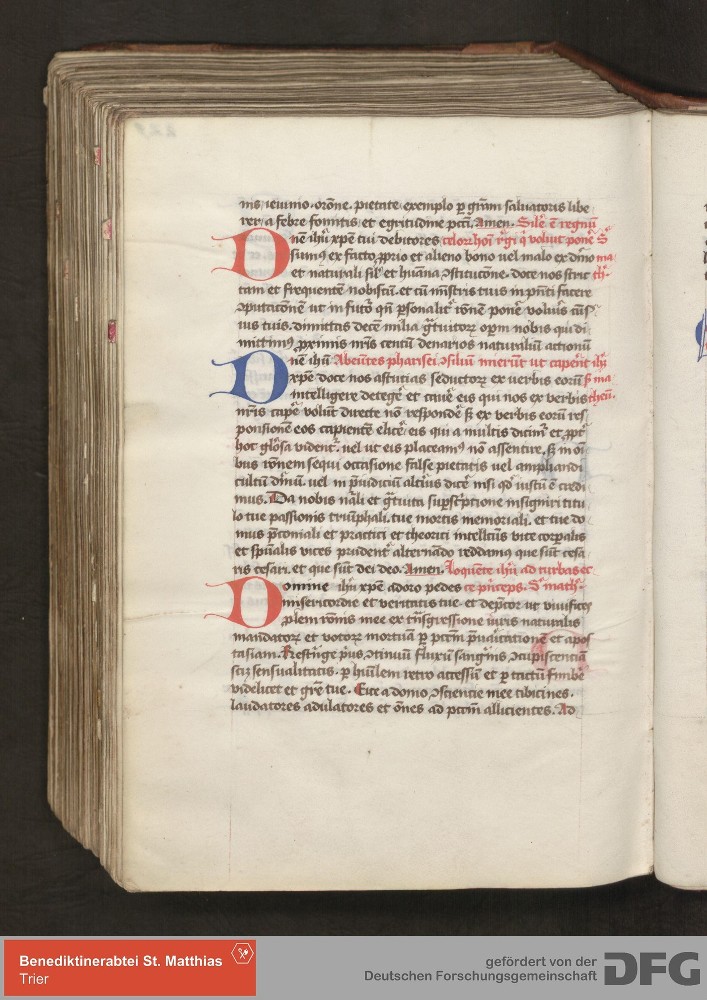 nis ieiunio. orõne. pietate exemplo ꝑ grãm saluatoris libe
rer a febre fomitis et egritudine pctĩ. Amen. Simile ẽ regnũ
Dnẽ ihũ xp̃e tui debitores celoꝝ hoĩ regi q̃ voluit ponẽ
sumꝰ ex facto ꝓprio et alieno bono uel malo ex dĩno
et naturali et humana ꝯstitucõne. doce nos stric
tam et frequentẽ nobiscũ. et cũ ministris tuis in pñti facere
ꝯputacõnẽ ut in futuro qñ ꝑsonaliter rõnem ponẽ voluĩs cũ
uis tuis. dimittas decẽ milia gratuitoꝝ opeꝝ nobis qui di
mittimꝰ ꝓximis nris centũ denarios naturaliũ actionũ
Dnẽ ihũ Abeũtes pharisei ꝯsiliũ inierũt ut caperẽt ihũ
xp̃e doce nos astutias seductoꝝ ex verbis eorũ
intelligere detegẽ et cauẽ eis qui nos ex verbis
nr̃is capẽ volũt directe nõ respondẽ sꝫ ex verbis eorũ res
ponsionẽ eos capientẽ elicẽ eis qui a multis dicimꝉ et ꝓpt
hoc glõsa vident. uel ut eis placeamꝰ nõ assentire. sꝫ in oĩ
bus rõnem sequi occasione false pietatis uel ampliandi
cultũ diuinũ. uel in p̃iudiciũ alterius dicẽ nisi qd̛ iustũ ẽ credi
mus. Da nobis nãli et gratuita supscriptione insigniri titu
lo tue passionis triũphali. tue mortis memoriali. et tue do
mus p̃coniali et practici et theorici intellectus vice corꝑalis
et spũalis vices prudenter alternãdo reddamus que sũt cesa
ris cesari. et que sũt dei deo. Amen. Loquente ihũ ad turbas ec
Domine ihũ xp̃e adoro pedes ce princeps. S. math.
misericordie et veritatis tue. et dep̃cor ut viuifices
ꝓlem rõnis mee ex trãsgressione iuris naturalis
mandatoꝝ et votoꝝ mortuam ꝑ pctm̃ p̃uaricationẽ et apos
tasiam. Restringe prius ꝯtinuũ fluxũ sanguinis ꝯcupiscentiã
scꝫ sensualitatis. ꝑ humilem retro accessũ et ꝑ tactũ fimbrie
videlicet et grẽ tue. Eice a domo ꝯscientie mee tibicines.
laudatores adulatores et õnes ad pctm̃ allicientes. Ad
Benediktinerabtei St. Matthias
Trier
gefördert von der
Deutschen Forschungsgemeinschaft
DFG